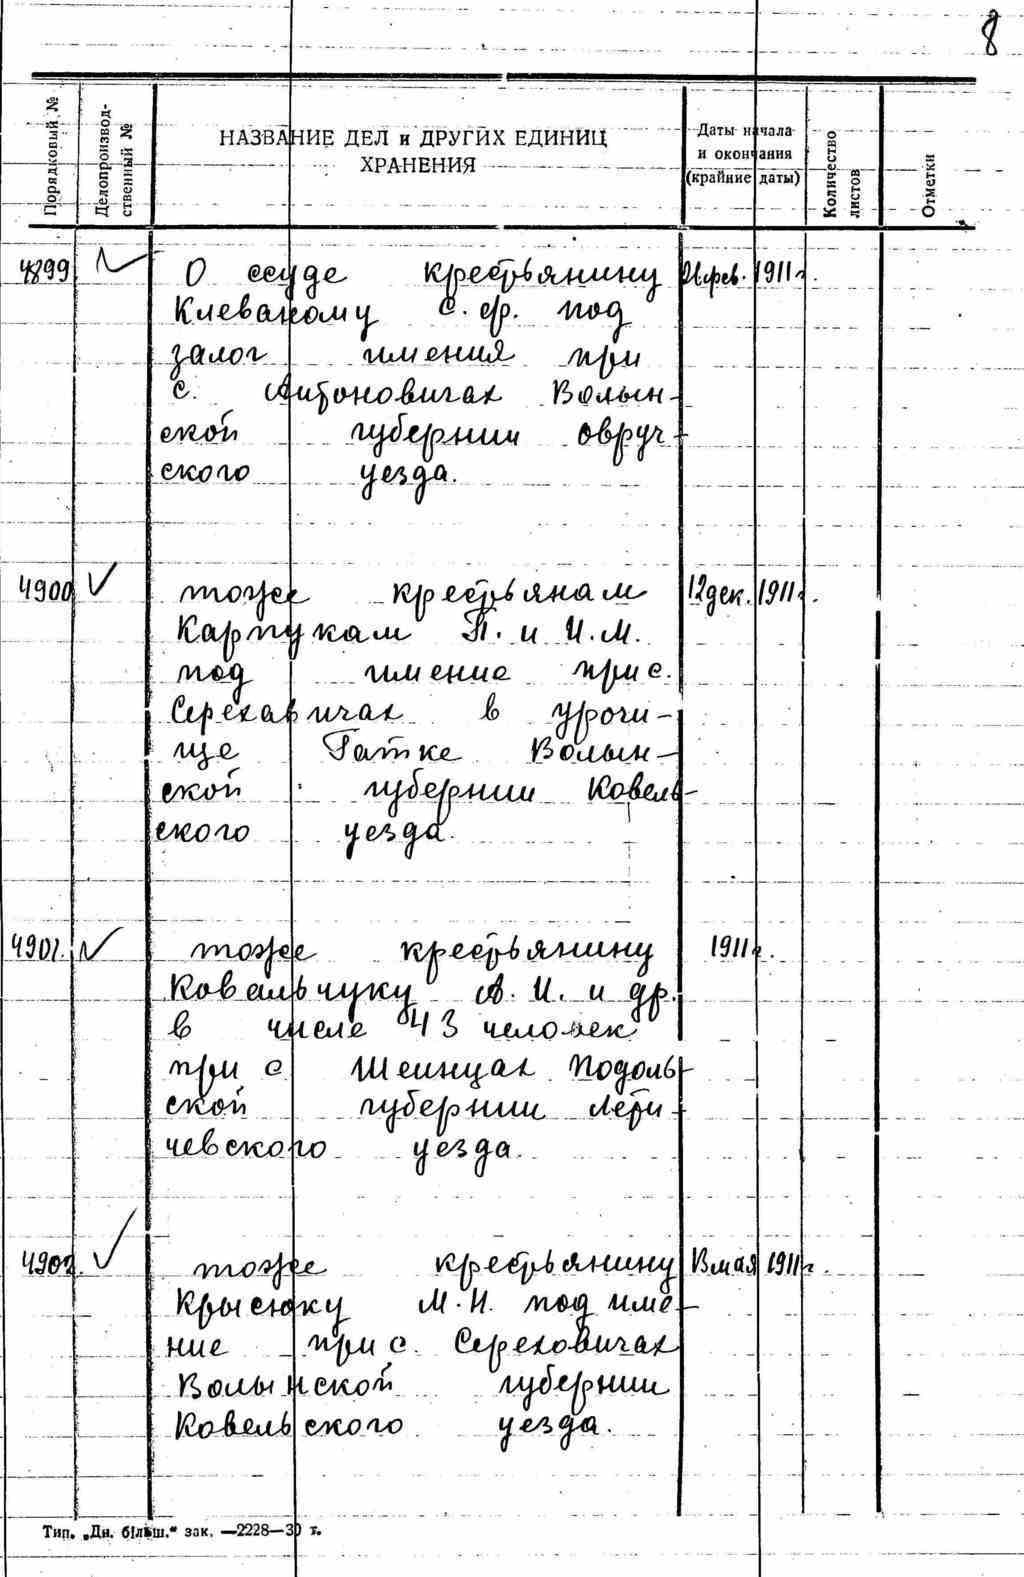 8
Порядковый №
Делопроизвод-
ственный №
НАЗВАНИЕ ДЕЛ и ДРУГИХ ЕДИНИЦ
ХРАНЕНИЯ
Даты начала
и окончания
(крайние даты)
Количество
листов
Отметки
4899 О ссуде крестьянину 21 фев. 1911 г.
Клевакому С. ф. под
залог имения при
с. Антоновичах Волын-
ской губернии Овруч-
ского уезда.
4900 тоже крестьянам 12 дек. 1911 г.
Карпукам П. и И. М.
под имение при с.
Серехавичах в урочи-
ще Гатке Волын-
ской губернии Ковель-
ского уезда.
4901. тоже крестьянину 1911 г.
Ковальчуку А. И. и др.
в числе 43 человек
при с. Шеинцах Подоль-
ской губернии Лети-
чевского уезда.
4902. тоже крестьянину мая 1911 г.
Крысюку М. Н. под име-
ние при с. Сереховичах
Волынской губернии
Ковельского уезда.
Тип. „Дн. більш." зак. —2228—30 т.